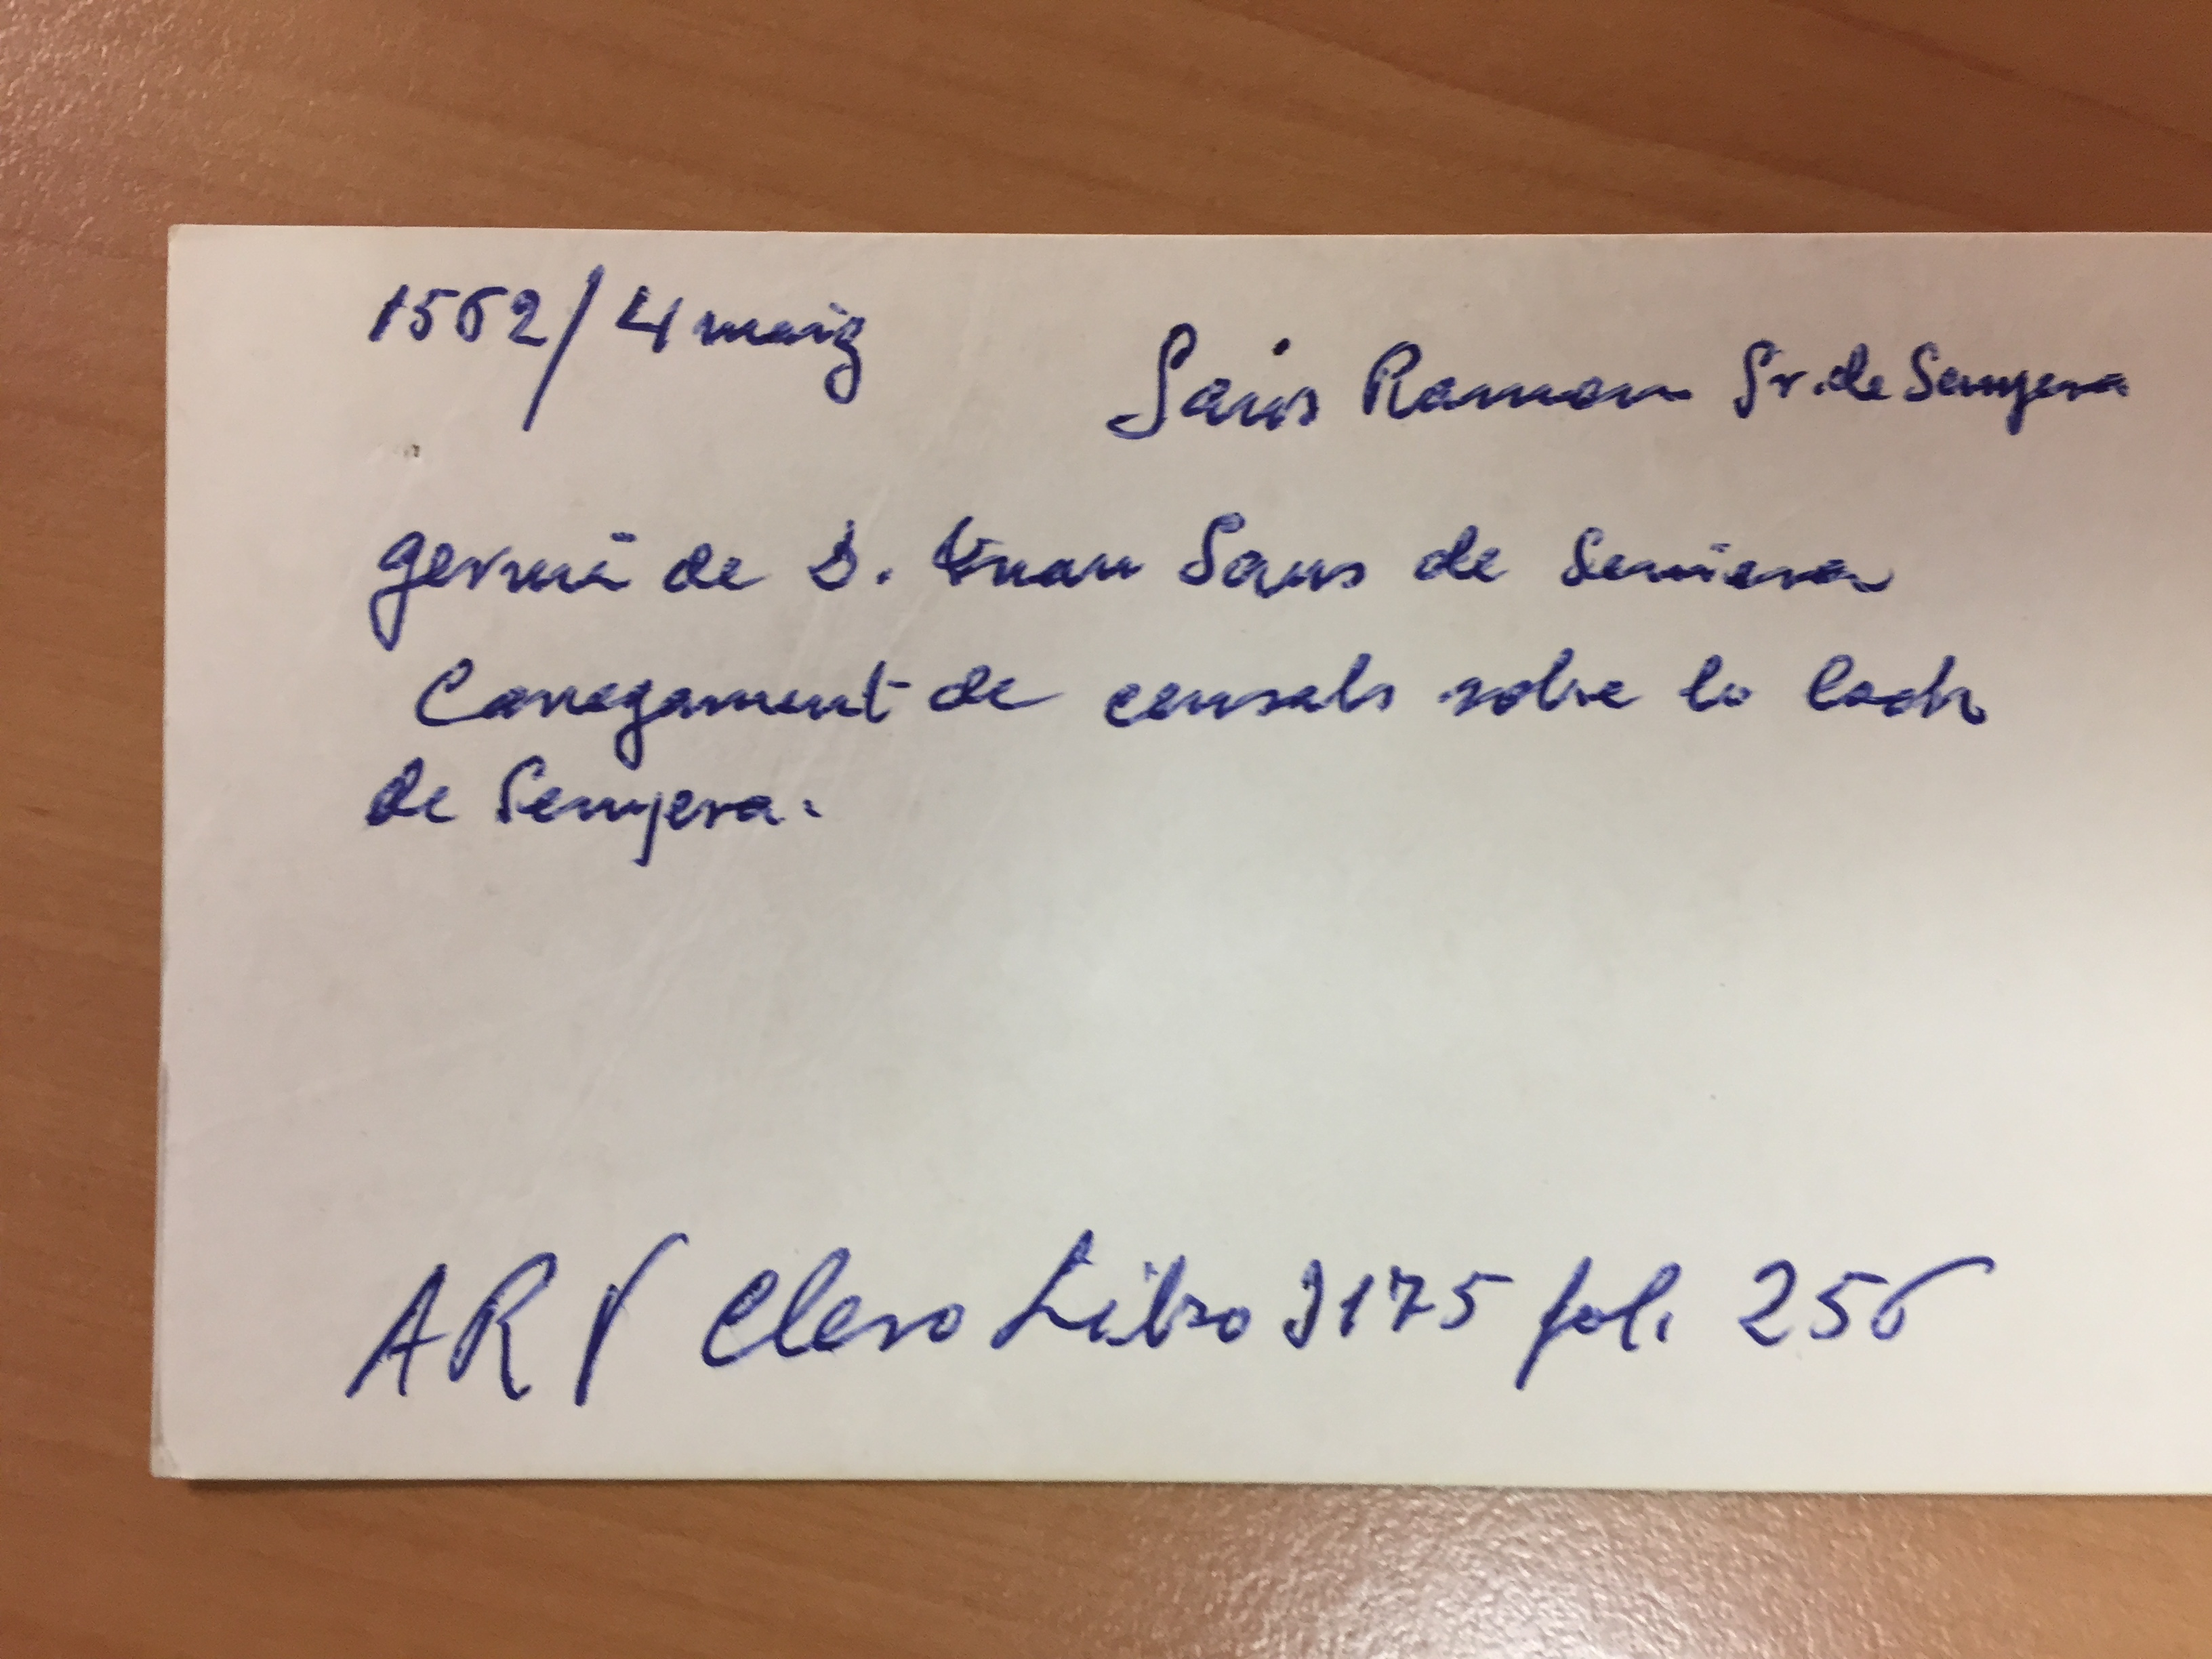 1562/4 març
Sans Ramon Sr. de Senyera
germà de D. Juan Sans de Senyera
Carregament de censals sobre lo loch
de Senyera.
ARV Clero Libro 3175 fol. 256